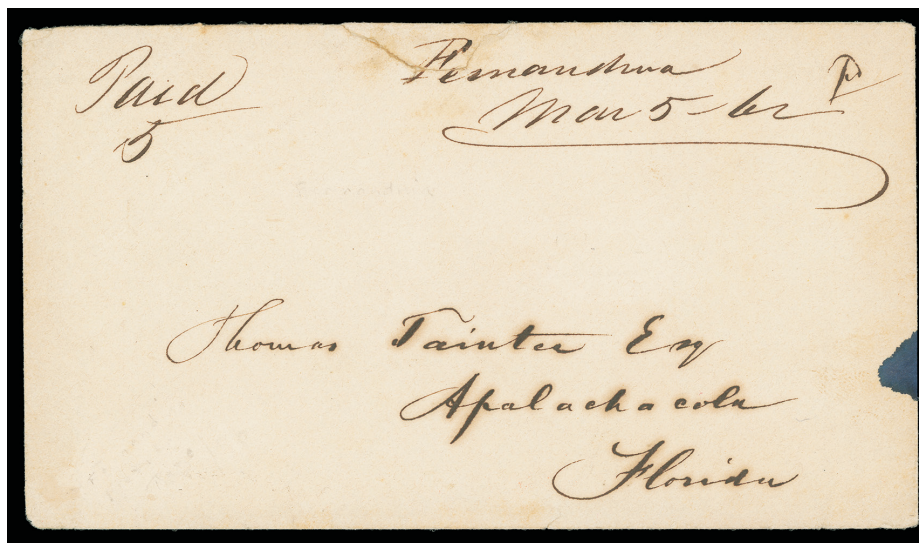 Paid
5
Fernandina
Mar 5 - 62
F
Thomas Tainter Esq
Apalachacola
Florida